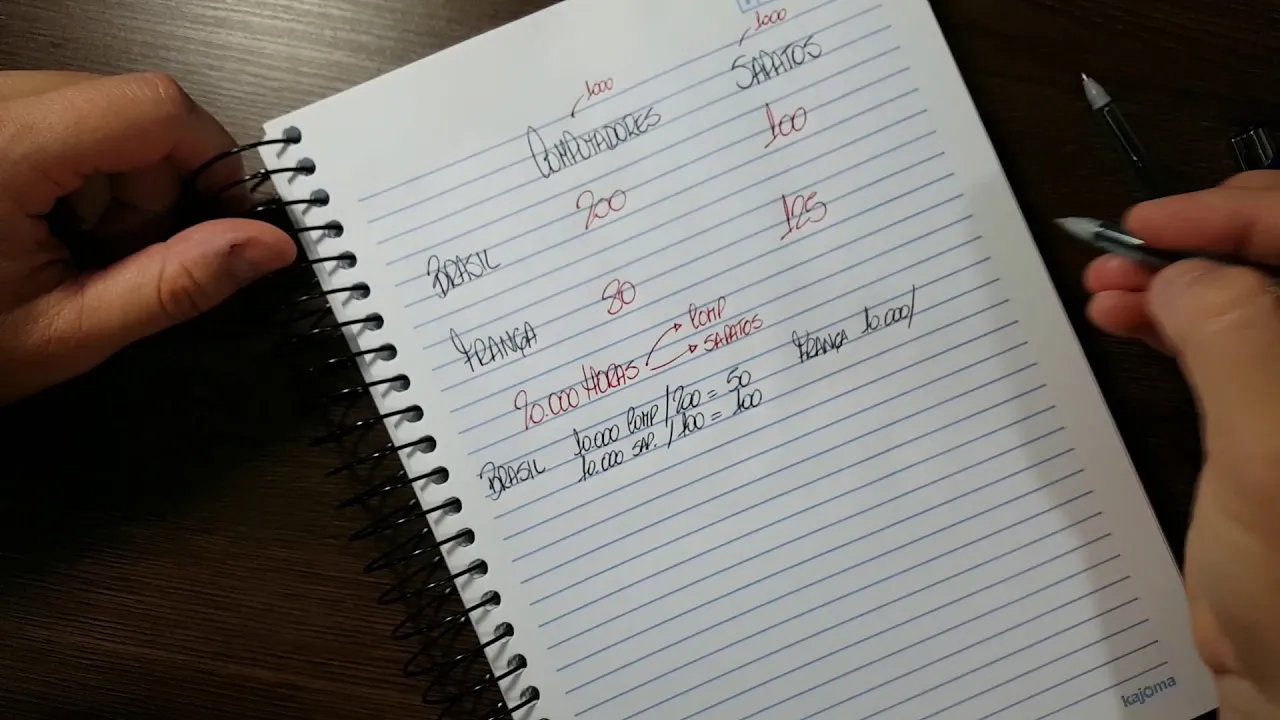 1000
1000
COMPUTADORES SAPATOS
BRASIL 200 100
FRANÇA 80 125
20.000 HORAS COMP
SAPATOS
BRASIL 10.000 COMP / 200 = 50
10.000 SAP. / 100 = 100
FRANÇA 10.000/
kajoma